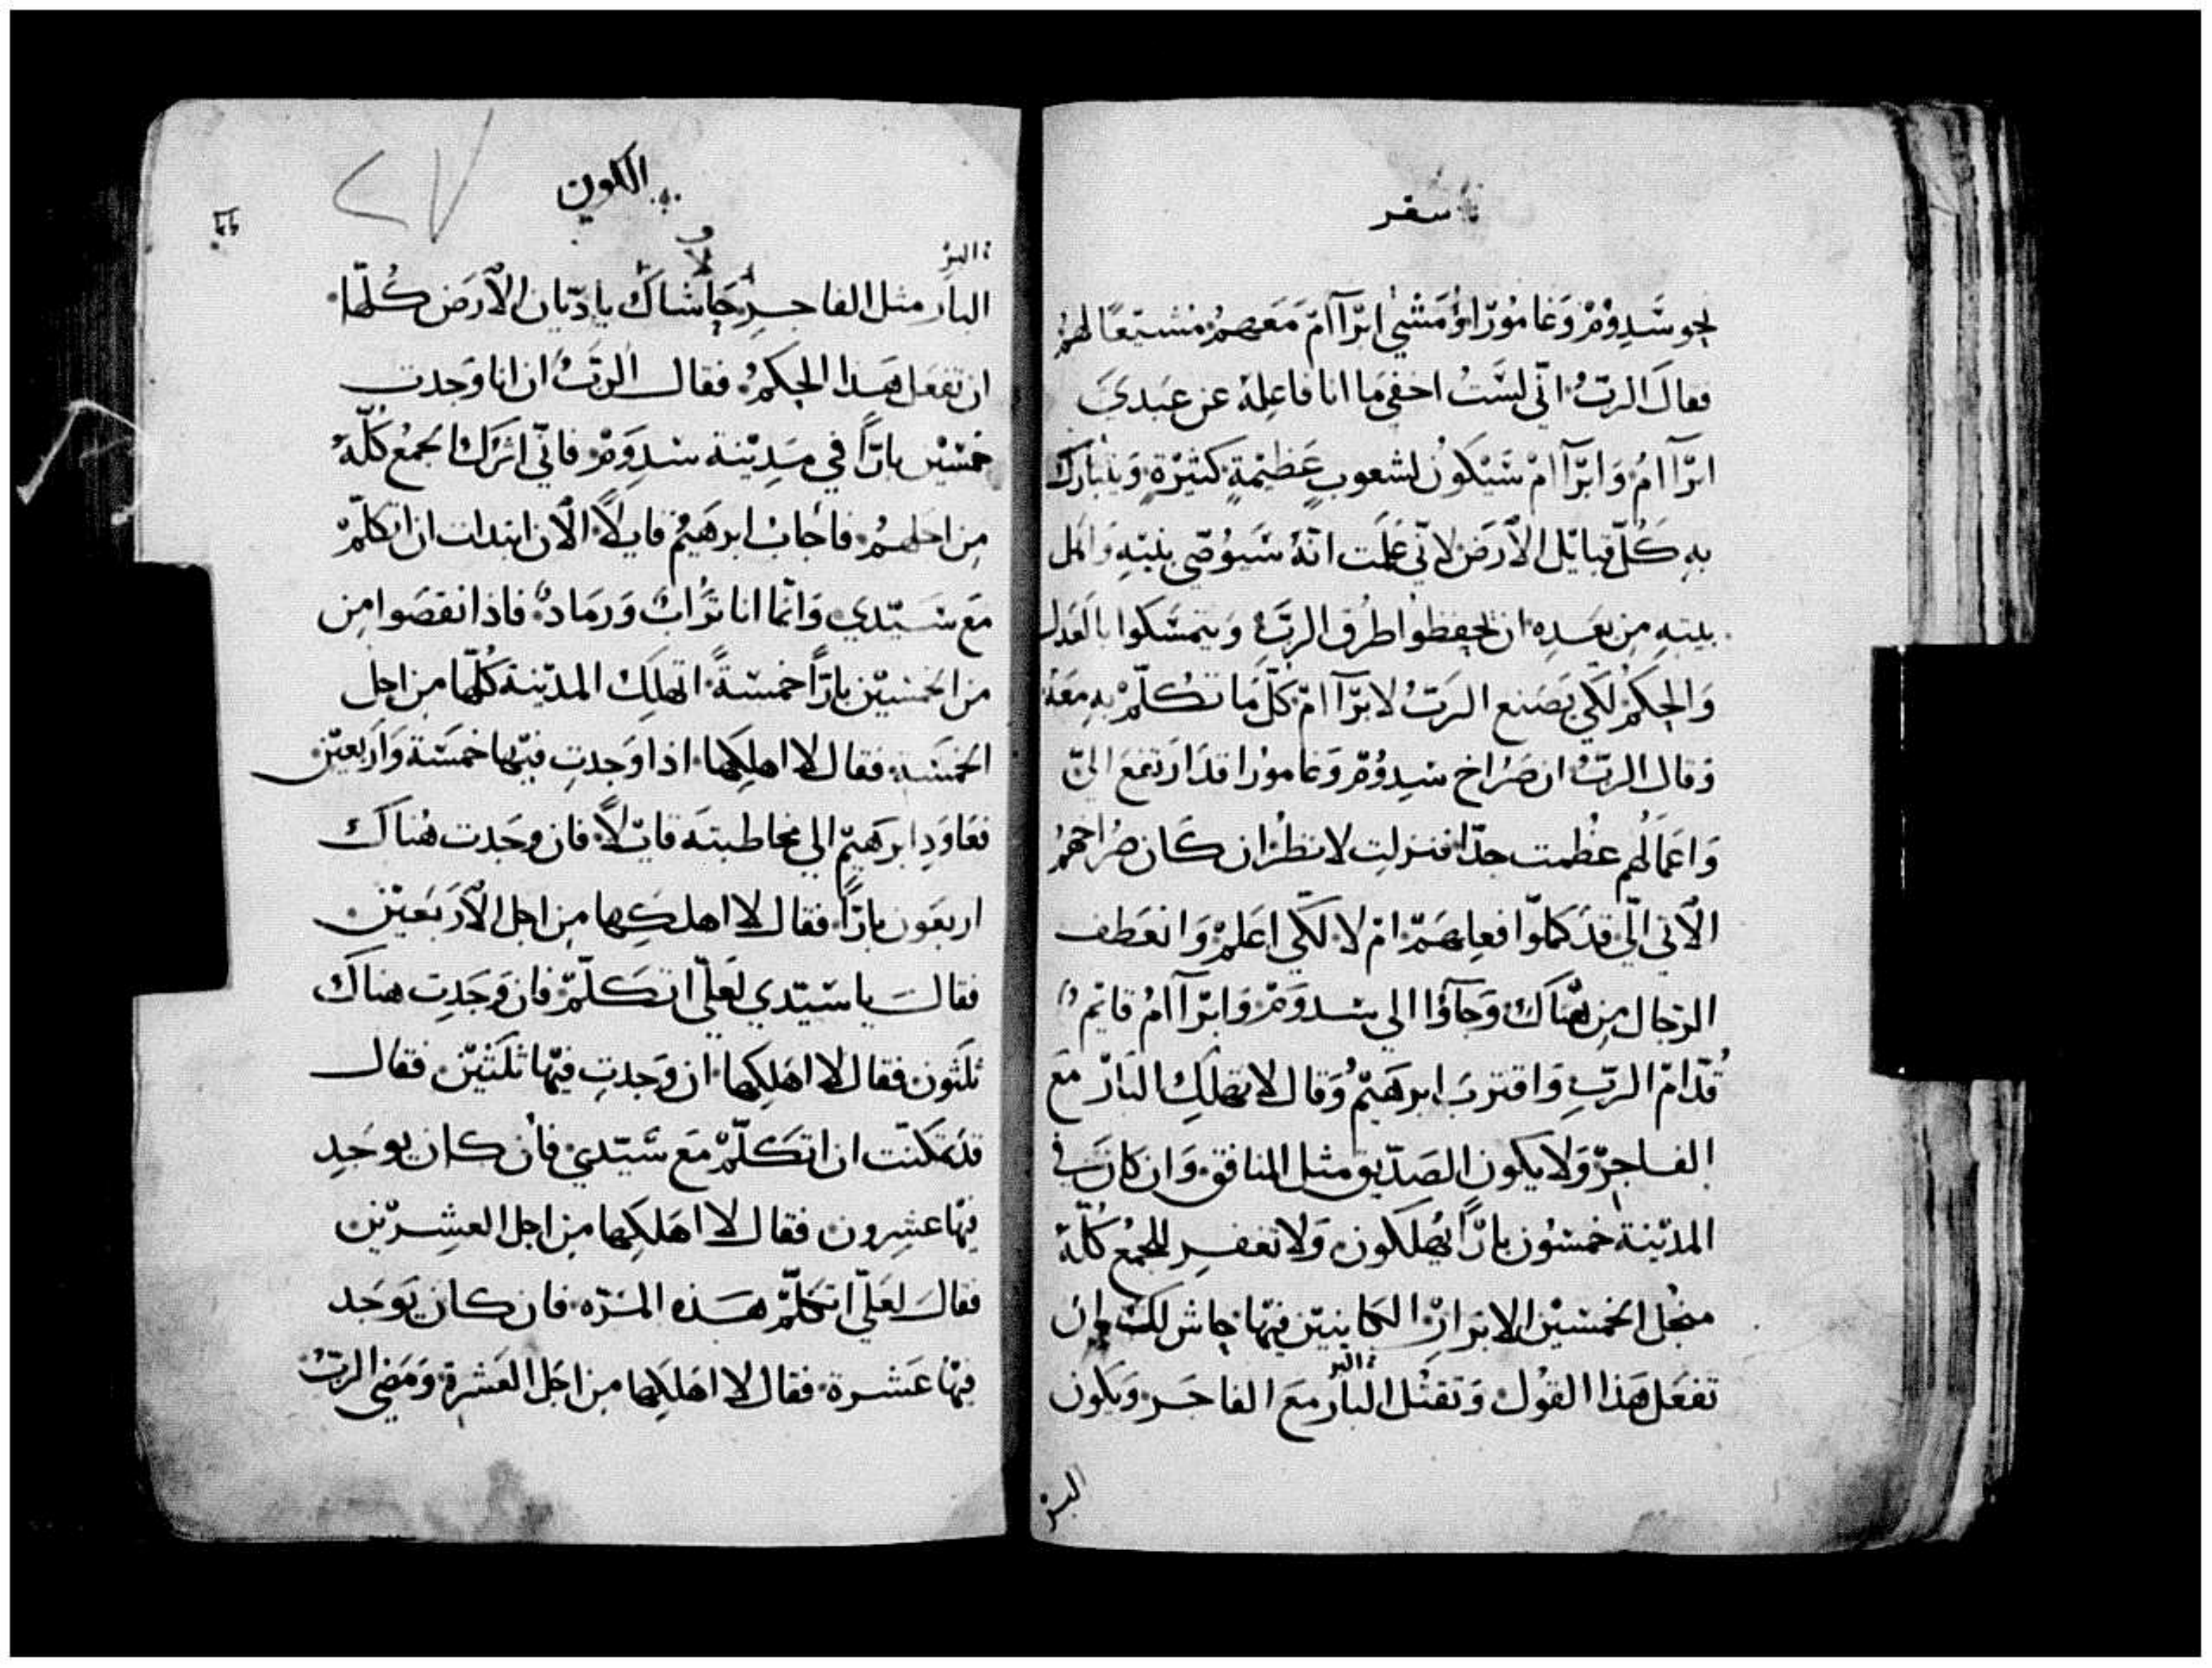 سفر
نحو سَدِوُمْ وَغامُورّا وَمَشي ابرَآامْ مَعَهمُ مُشَيّعًا لهمُ
فقالَ الربُّ اني لسَّتُ اخفي مَا انا فاعِلهُ عن عَبدي
ابرَآامُ وَابرَآامْ سَيَكونُ لشعوبٍ عَظيمةٍ كثيرَةٍ وَيتبارك
بهِ كُلّ قبايل الاَرَض لاني عَلمت انهُ سَيوُصّي بنيهِ وَاهل
بيتهِ مِن بَعدِه ان يحفظوا طرق الربِّ وَيتمسَّكوا بالعَدل
وَالحِكمْ لكَي يَصَنع الرَبُّ لابرَآامْ كلّ مَا تكلّمْ بهِ مَعَهُ
وَقال الربُّ ان صُرَاخ سِدوُمْ وَغامورا قدَ ارَتفعَ اليّ
وَاعمَالهُم عظُمت جدّا فنزلت لانظُر ان كَان صُرَاخهمُ
الاَتي اليّ قدَ كمّلوا فعِلهَمْ امْ لا لكَي اعَلمْ وَانعَطف
الرّجال مِن هُنَاكَ وَجآؤا الي سَدوَمْ وَابرَآامُ قايمٌ
قُدّامْ الربِّ وَاقتربَ ابرهَيمْ وَقال لا تهلكِ البَارّ مَع
الفاجِرْ وَلا يكون الصَدّيق مثل المنافق وَان كانَ في
المدّينة خمسُون بارًّا يُهلَكون وَلا تغفِر للجمُع كُلّهُ
منجل الخمسَيْن الابرَارْ الكاينين فيَها حاش لك ان
البر
تفعَل هَذا القوُل وَتقتُل البارّ مَع الفاجَر وَيكون
البر
الكون
٢٧
البر
ولا
البارّ مثل الفاجِر حَاشاكَ يا دَيّان الاَرَض كُلّها
ان تفعَل هَذا الحِكمُ فقال الربُّ ان انا وَجدت
خمسَيْن بارًّا في مَدِيْنة سَدِوَمْ فاني اترَك الجمُع كُلّهُ
مِن اجَلهمُ فاجابُ ابرهَيمُ قايلاً الاَن ابتدات ان اتكَلّمْ
مَع سَيّدي وَانما انا ترُابٌ وَرمَادٌ فاذا نقصَوا مِن
من الخمسَيْن بارًّا خمسَةً اتهلك المدّينة كُلّها مِن اجل
الخمسَة فقال لا اهلِكها اذا وَجدتِ فيَها خمسَة وَارَبعيْن
فعَاوَدِ ابرَهَيم الي مخاطبتهَ قايلاً فان وجَدت هُناكَ
اربعَون بارًّا فقال لا اهلكِها مِن اجل الاَرَبَعيْن
فقالَ يا سَيّدي لعَلّي اتكَلّمْ فان وَجَدِت هناكَ
ثلَثون فقال لا اهَلِكها ان وَجَدتِ فيَها ثلَثيْن فقال
قدَ تمكنّت ان اتكَلّمْ مَع سَيّدي فان كان يوجَدِ
فيَها عشِرون فقال لا اهَلكِها مِن اجل العشِريْن
فقالَ لعَلّي اتكَلّمْ هَذه المرَّه فان كان يَوجَد
فيَها عَشرة فقال لا اهَلكِها مِن اجَل العَشَرة وَمَضي الربُّ